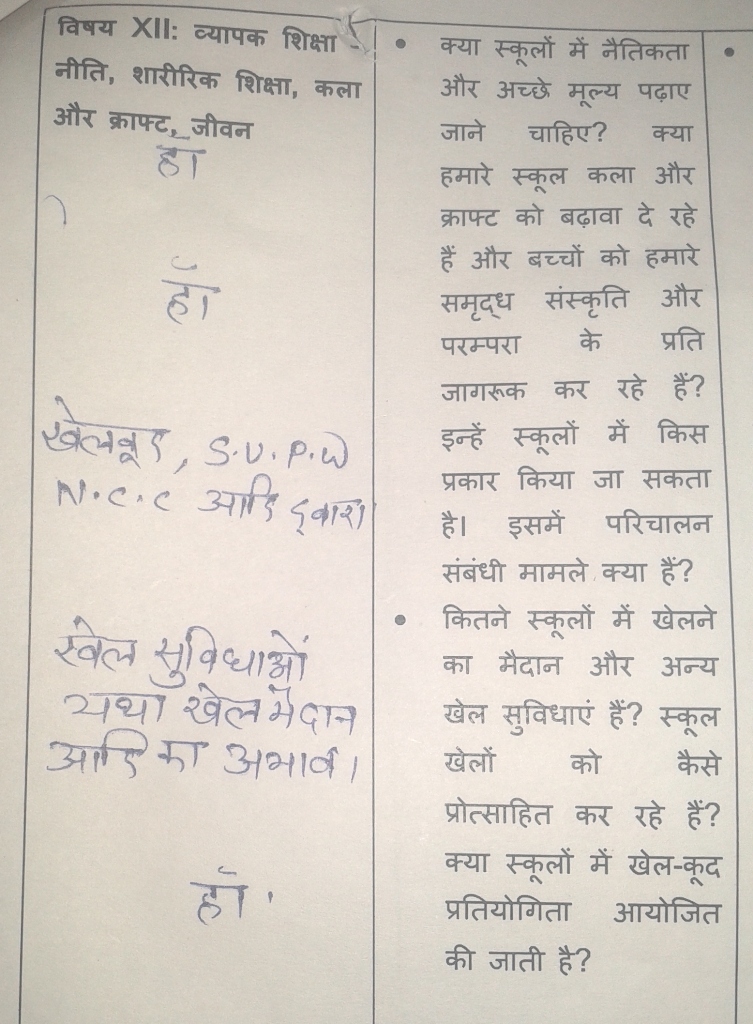 विषय XII: व्यापक शिक्षा -
नीति, शारीरिक शिक्षा, कला
और क्राफ्ट, जीवन
हाँ
हाँ
खेलकूद, S.U.P.W
N.C.C आदि द्वारा
खेल सुविधाओं
यथा खेल मैदान
आदि का अभाव।
हाँ
• क्या स्कूलों में नैतिकता
और अच्छे मूल्य पढ़ाए
जाने चाहिए? क्या
हमारे स्कूल कला और
क्राफ्ट को बढ़ावा दे रहे
हैं और बच्चों को हमारे
समृद्ध संस्कृति और
परम्परा के प्रति
जागरूक कर रहे हैं?
इन्हें स्कूलों में किस
प्रकार किया जा सकता
है। इसमें परिचालन
संबंधी मामले क्या हैं?
• कितने स्कूलों में खेलने
का मैदान और अन्य
खेल सुविधाएं हैं? स्कूल
खेलों को कैसे
प्रोत्साहित कर रहे हैं?
क्या स्कूलों में खेल-कूद
प्रतियोगिता आयोजित
की जाती है?
•